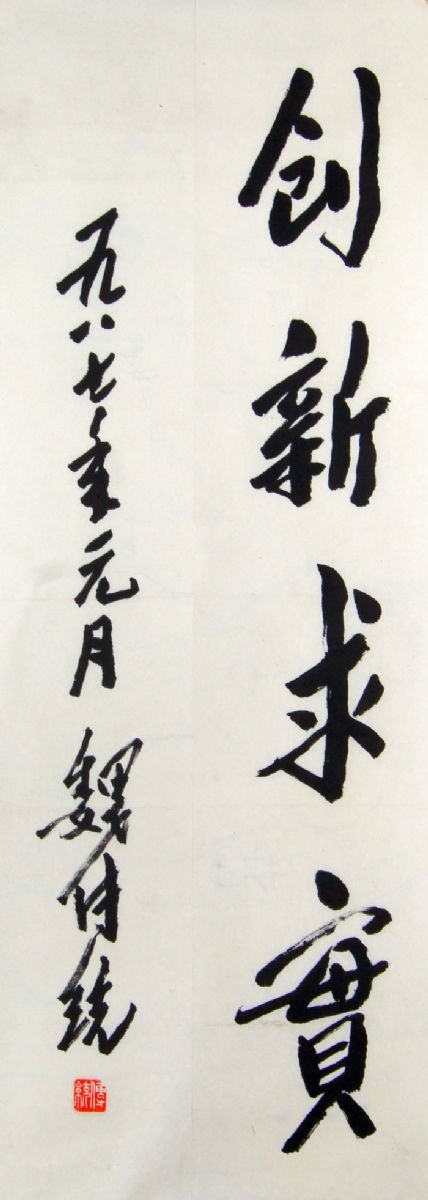 创新求實
一九八七年元月 魏传统
傳統